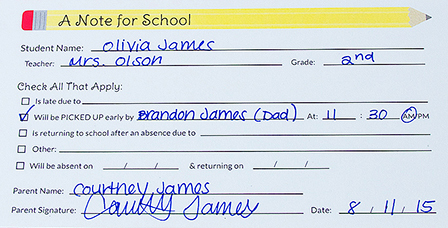 A Note for School
Student Name: Olivia James
Teacher: Mrs. Olson Grade: 2nd
Check All That Apply:
Is late due to
Will be PICKED UP early by Brandon James (Dad) At: 11 : 30 AM/PM
is returning to school after an absence due to
Other:
Will be absent on / / & returning on / /
Parent Name: Courtney James
Parent Signature: Courtney James Date: 8 / 11 / 15